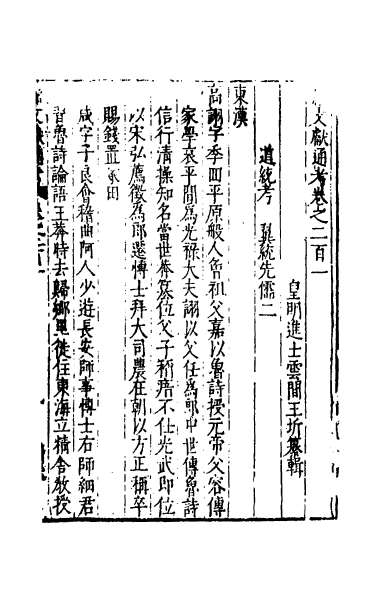 文獻通考卷之二百一
皇明進士雲間王圻纂輯
道統考 翼統先儒二
東漢
高詡字季回平原般人曾祖父嘉以魯詩授元帝父容傳
家學哀平間爲光祿大夫詡以父任爲郎中世傳魯詩
信行清操知名當世莽簒位父子稱瘖不仕光武即位
以宋弘薦徵爲郎遷博士拜大司農在朝以方正稱卒
賜錢置冡田
咸字子良會稽曲阿人少遊長安師事博士右師細君
習魯詩論語王莽時去歸鄉里徒住東海立精舍教授